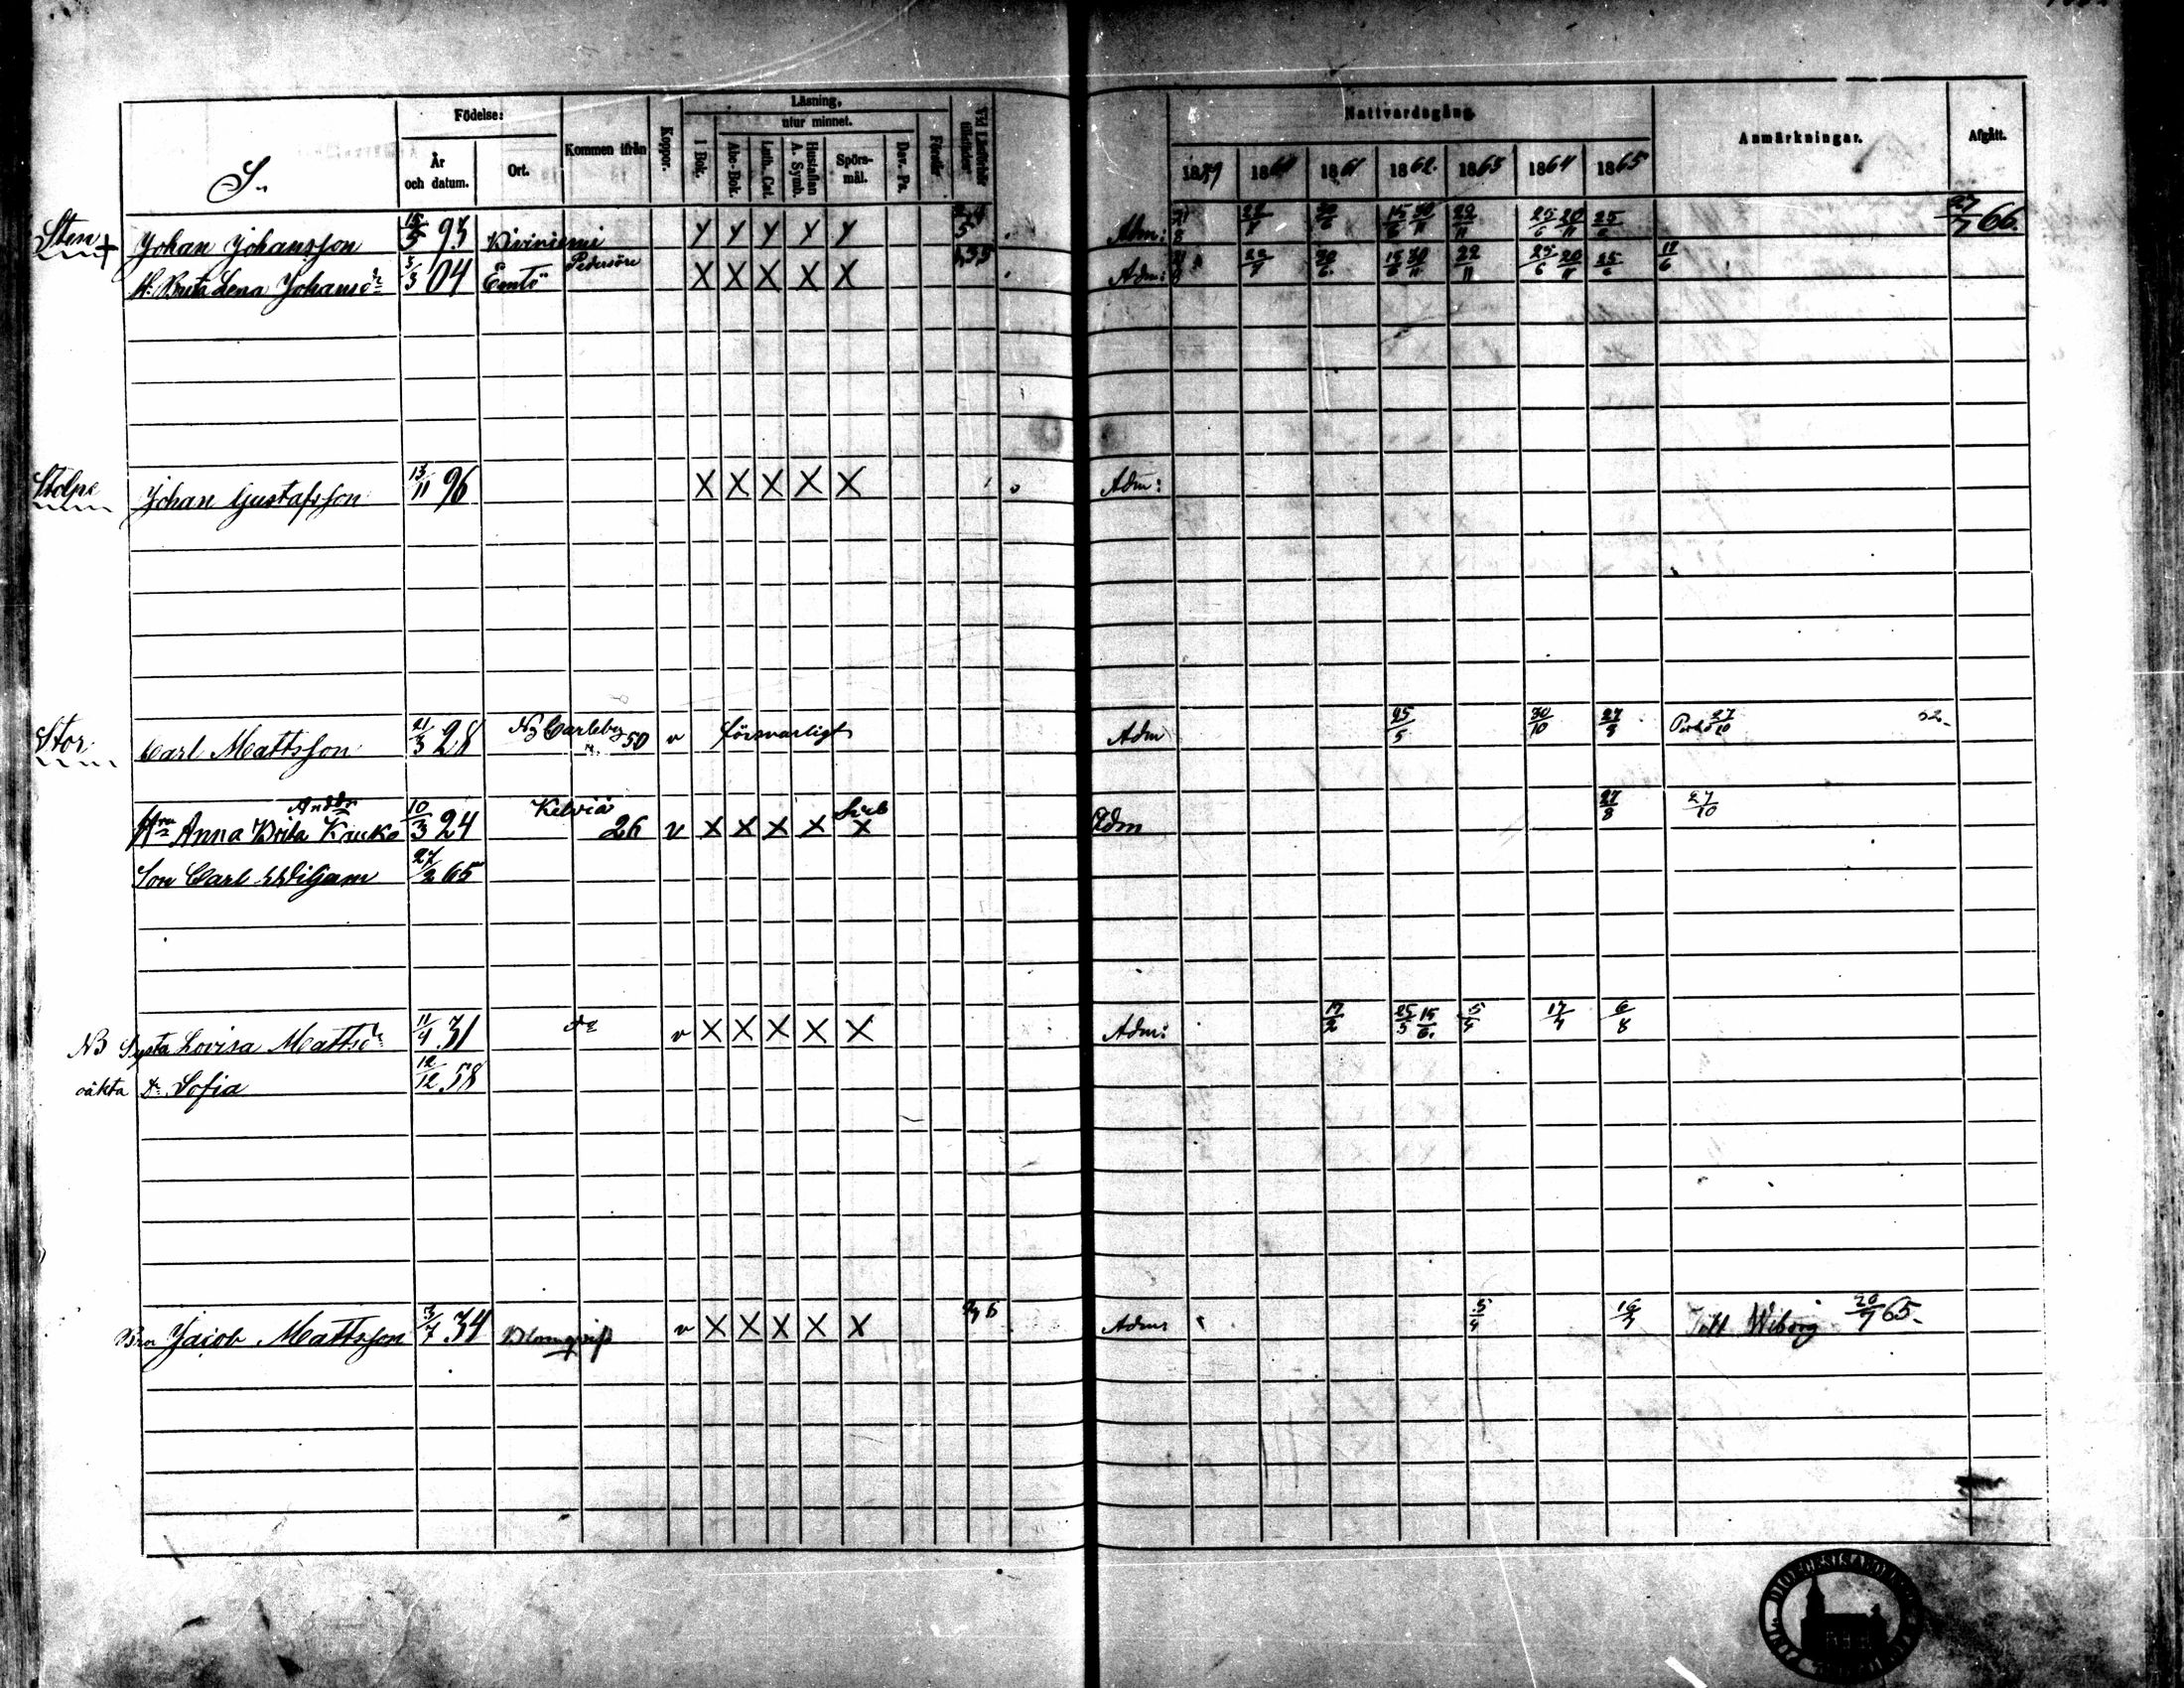 Födelse:
Läsning,
utur minnet.
S.
År
och datum.
Ort.
Kommen ifrån
Koppor.
I Bok.
Abc-Bok.
Luth. Cat.
Hustaflan
A. Symb.
Spörs-
mål.
Dav. Ps.
Förstår
Vid Läsförhör
Nattvardsgång.
1859 1860 1861 1862. 1863 1864 1865
Anmärkningar.
Afgått.
Sten + Johan Johansson 15/5 93 Kiviniemi Y Y Y Y Y Adm: 22/7 30/6 15/6 30/11 22/11 25/6 20/11 25/6 27/7 66.
H. Brita Lena Johansdr 3/3 04 Emtö Pedersöre X X X X X Adm: 22/7 30/6 15/6 30/11 22/11 25/6 20/11 25/6 17/6
Stolpe Johan Gustafsson 13/11 96 X X X X X Adm:
Stor Carl Mattsson 21/3 28 Ny Carleby 50 v försvarligt Adm 25/5 30/10 27/8 27/10 52.
Andsdr
Hru Anna Brita Kauka 10/3 24 Kelviä 26 v X X X X X Adm 27/8 27/10
Son Carl Wiljam 27/2 65
NB Systa Lovisa Mattsdr 11/4 31 do v X X X X X Adm: 17/2 25/5 15/6. 5/4 17/4 6/8
oäkta Dr Sofia 12/12 58
Bro Jacob Mattsson 3/7 34 Blomqvist v X X X X X Adm 5/4 16/7 Wiborg 20/7 65.